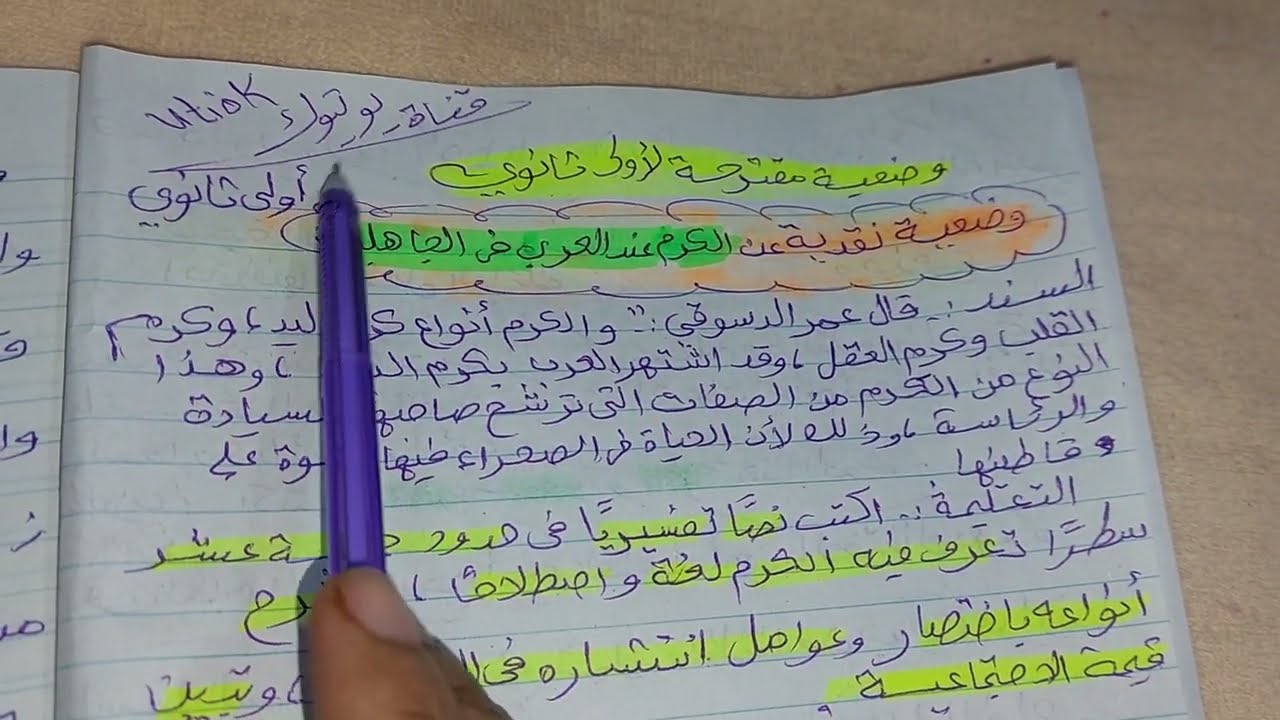 قناة يوتيوك utiok
وضعية مقترحة لأولى ثانوي
أولى ثانوي
وضعية نقدية عن الكرم عند العرب في الجاهلي
السند: قال عمر الدسوقي: "والكرم أنواع اليد، وكرم
القلب وكرم العقل، وقد اشتهر العرب بكرم ، وهذا
النوع من الكرم من الصفات التي ترشح صاحبها لسيادة
والرئاسة، وذلك لأن الحياة في الصحراء فيها على
قاطنيها
التعليمة: اكتب نصًا تفسيريًا في حدود عشر
سطرًا تعرف فيه الكرم لغة واصطلاحًا،
أنواعه باختصار وعوامل انتشاره في ، وتبين
قيمة الاجتماعية